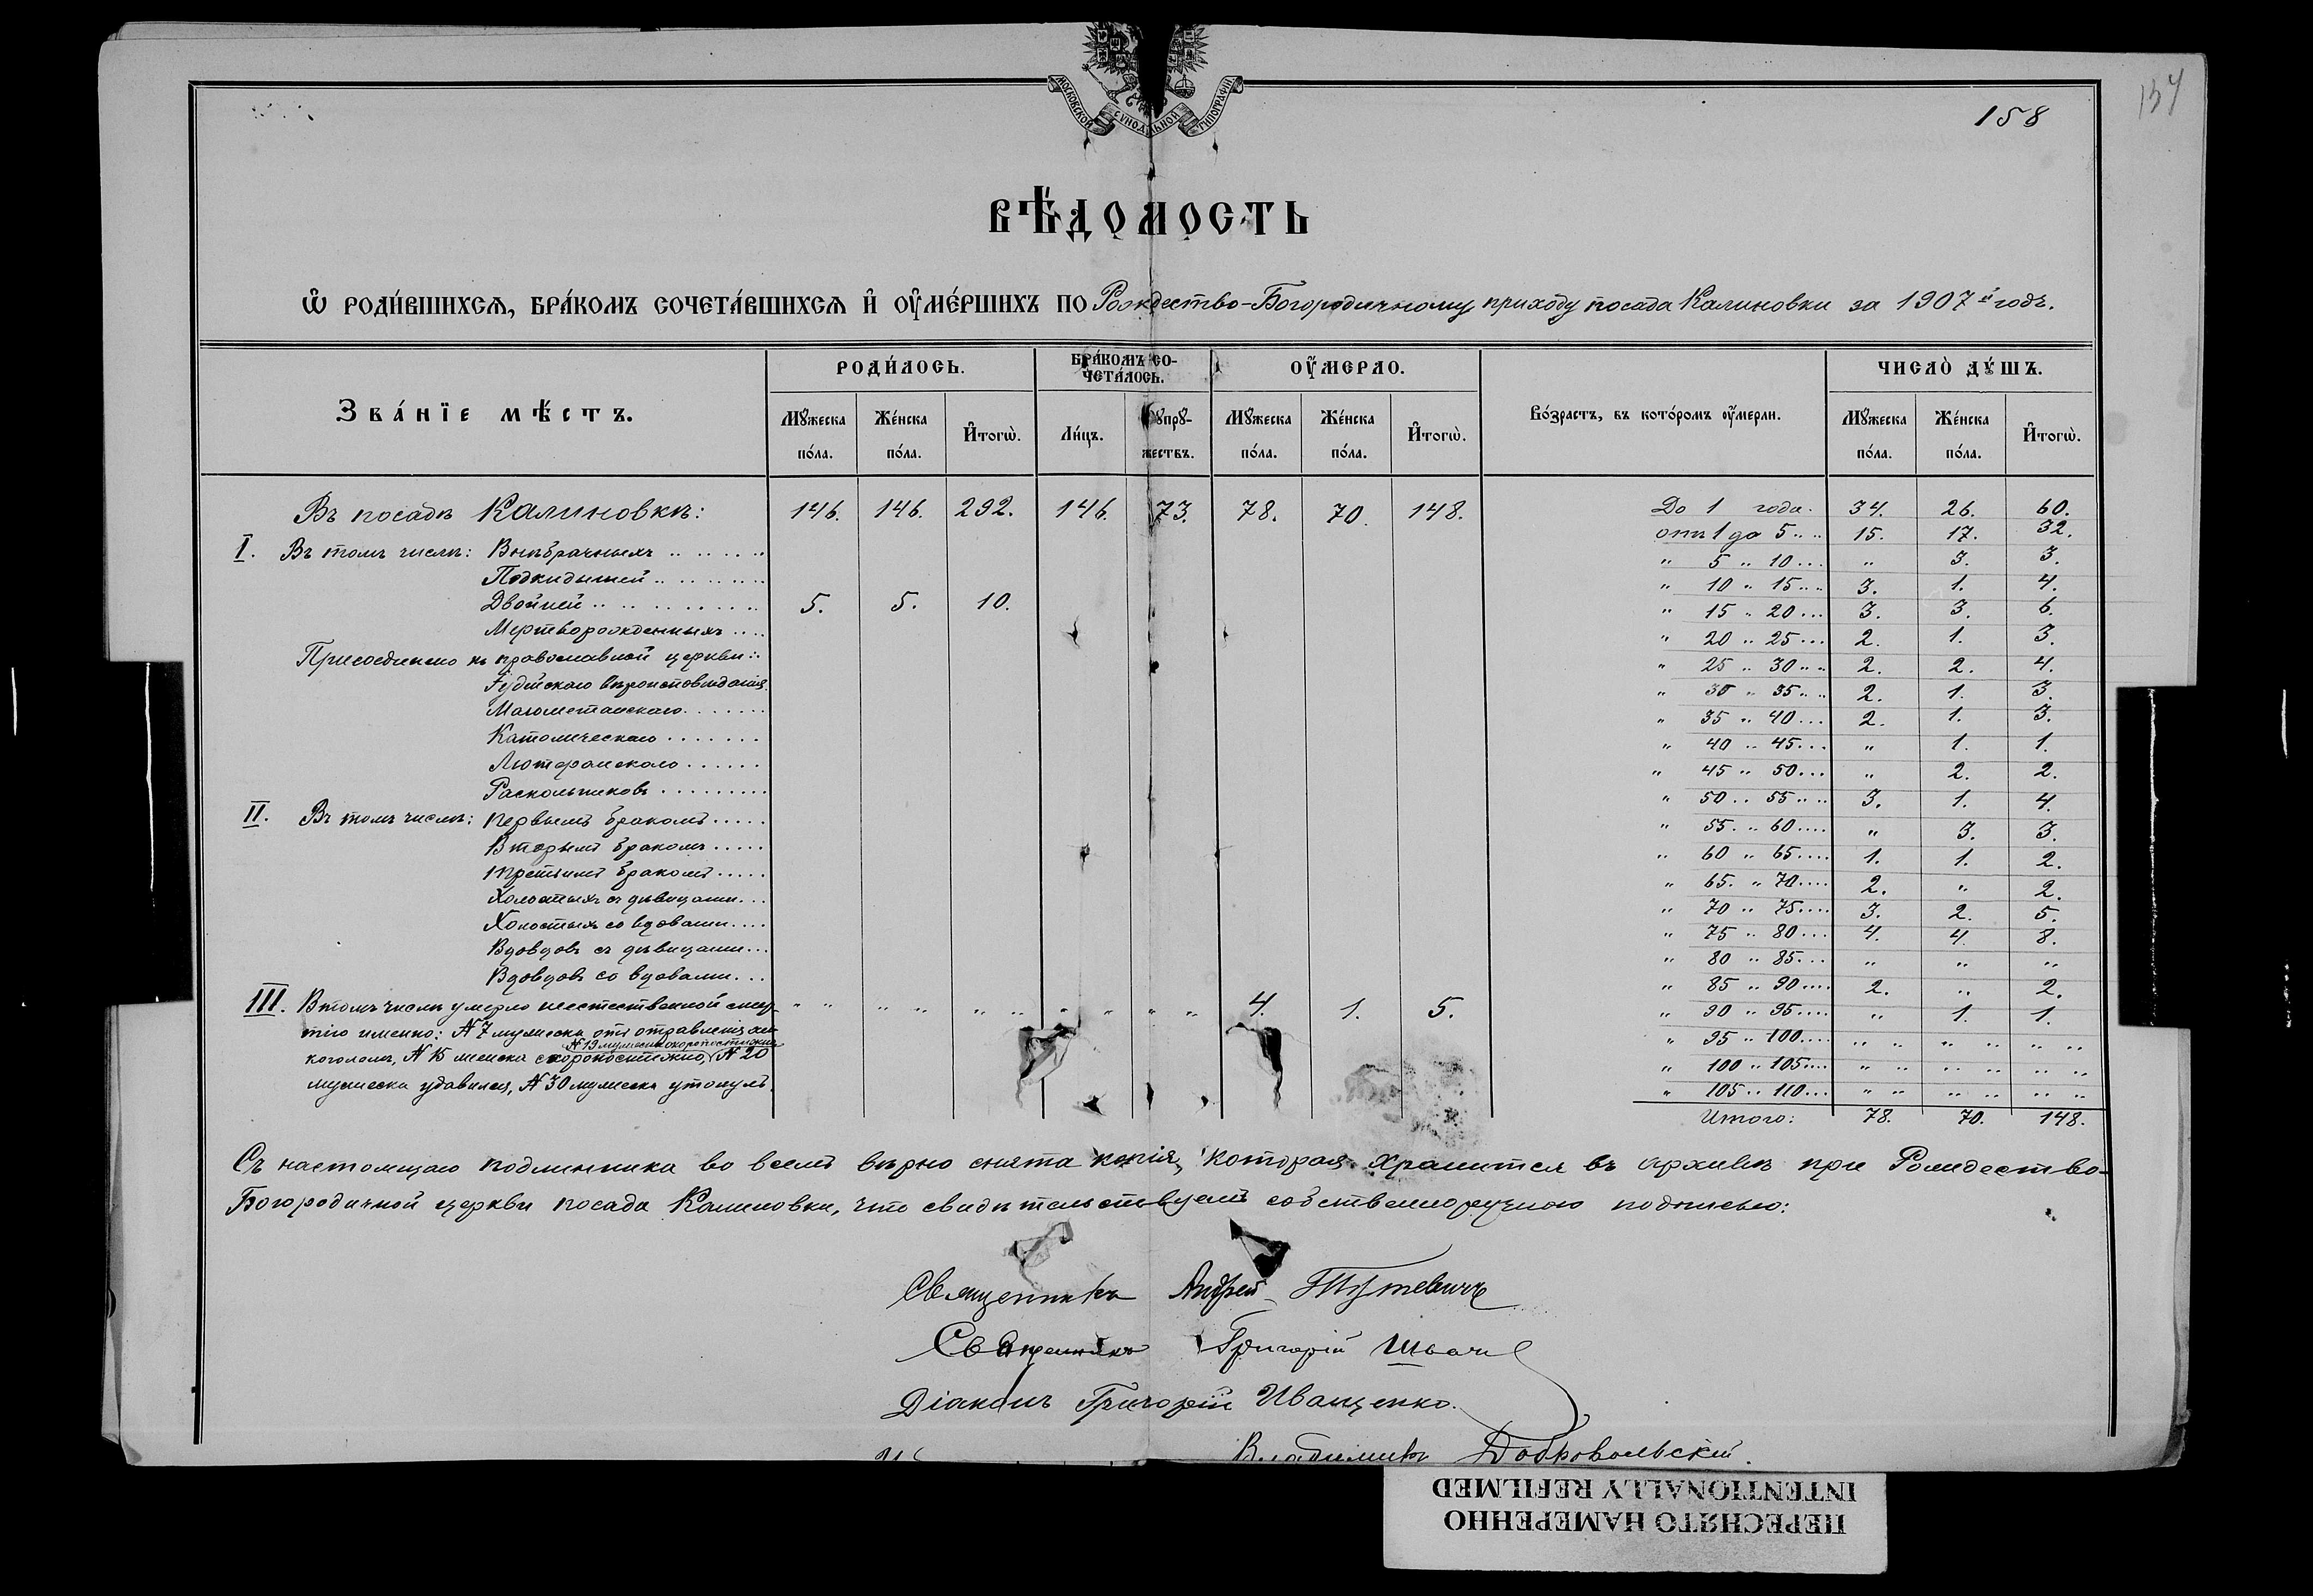 МОСКОВСКОЙ СѴНОДАЛЬНОЙ ТИПОГРАФІИ
158
ВѢДОМОСТЬ
Ѡ РОДИВШИХСѦ, БРАКОМЪ СОЧЕТАВШИХСѦ И ОУМЕРШИХЪ ПО Рождество-Богородичному приходу посада Калиновки за 1907й годъ.
Званїе мѣстъ. РОДИЛОСЬ. БРАКОМЪ СО- ОУМЕРЛО. Возрастъ, въ которомъ оумерли. ЧИСЛО ДꙊШЪ.
ЧЕТАЛОСЬ.
Мꙋжеска Женска Итогѡ. Лицъ. Сꙋпрꙋ- Мꙋжеска Женска Итогѡ. Мꙋжеска Женска Итогѡ.
пола. пола. жествъ. пола. пола. пола. пола.
Въ посадѣ Калиновкѣ: 146. 146. 292. 146. 73. 78. 70. 148. До 1 года. 34. 26. 60.
I. Въ томъ числѣ: Внѣбрачныхъ отъ 1 до 5 15. 17. 32.
Подкидышей " 5 " 10 " 3. 3.
" 10 " 15 3. 1. 4.
Двойней 5. 5. 10. " 15 " 20 3. 3. 6.
Мертворожденныхъ " 20 " 25 2. 1. 3.
Присоединено къ православной церкви: " 25 " 30 2. 2. 4.
Іудейскаго вѣроисповѣданія " 30 " 35 2. 1. 3.
Магометанскаго " 35 " 40 2. 1. 3.
Католическаго " 40 " 45 " 1. 1.
Лютеранскаго " 45 " 50 " 2. 2.
Раскольниковъ " 50 " 55 3. 1. 4.
II. Въ томъ числѣ: первымъ бракомъ " 55 " 60 " 3. 3.
Вторымъ бракомъ " 60 " 65 1. 1. 2.
третьимъ бракомъ " 65 " 70 2. " 2.
Холостыхъ съ дѣвицами " 70 " 75 3. 2. 5.
Холостыхъ со вдовами " 75 " 80 4. 4. 8.
Вдовцовъ съ дѣвицами " 80 " 85 " " "
Вдовцовъ со вдовами " 85 " 90 2. " 2.
III. Въ томъ числѣ умерло неестественной смер- " " " " " " " " " " 4. 1. 5. " 90 " 95 " 1. 1.
тію именно: № 7 мужеска отъ отравленія ал- " 95 " 100 " " " " " "
№ 19 мужеска скоропостижно
коголемъ, № 15 женска скоропостижно, № 20 " 100 " 105 " " " " " "
мужеска удавился, № 30 мужеска утонулъ. " 105 " 110 " " " " " "
Итого: 78. 70. 148.
Съ настоящаго подлинника во всемъ вѣрно снята копія, которая хранится въ архивѣ при Рождество-
Богородичной церкви посада Калиновки, что свидѣтельствуемъ собственноручною подписью:
Священникъ Андрей
Священникъ Григорій Швачъ
Діаконъ Григорій Иващенко.
Владимиръ Добровольскій.
INTENTIONALLY REFILMED
ПЕРЕСНЯТО НАМЕРЕННО